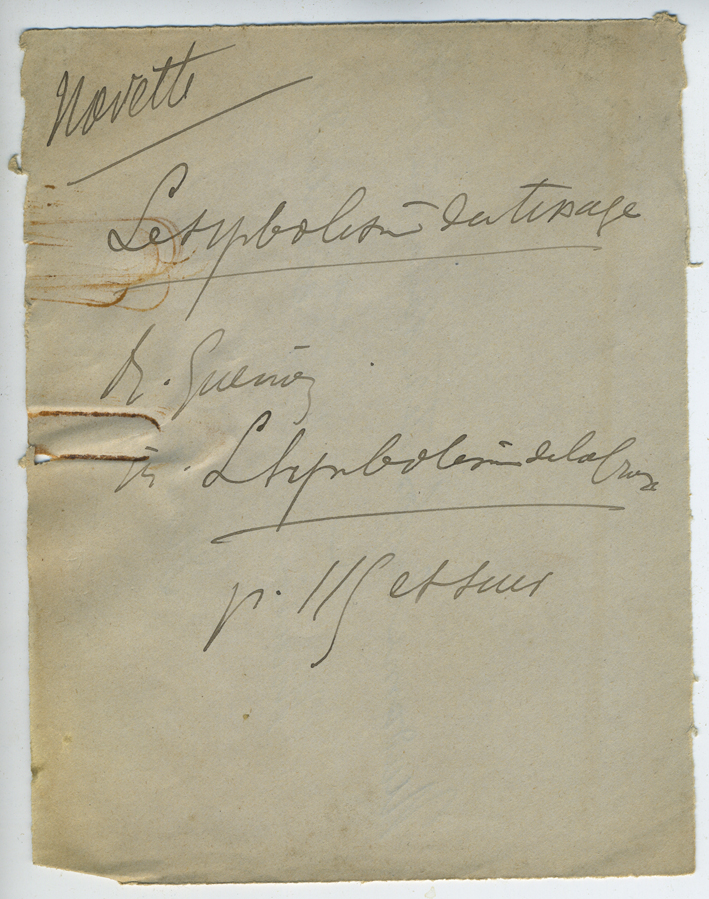 Navette
Le symbolisme du tissage
R. Guénon
in. Le symbolisme de la Croix
p. 115 et suiv